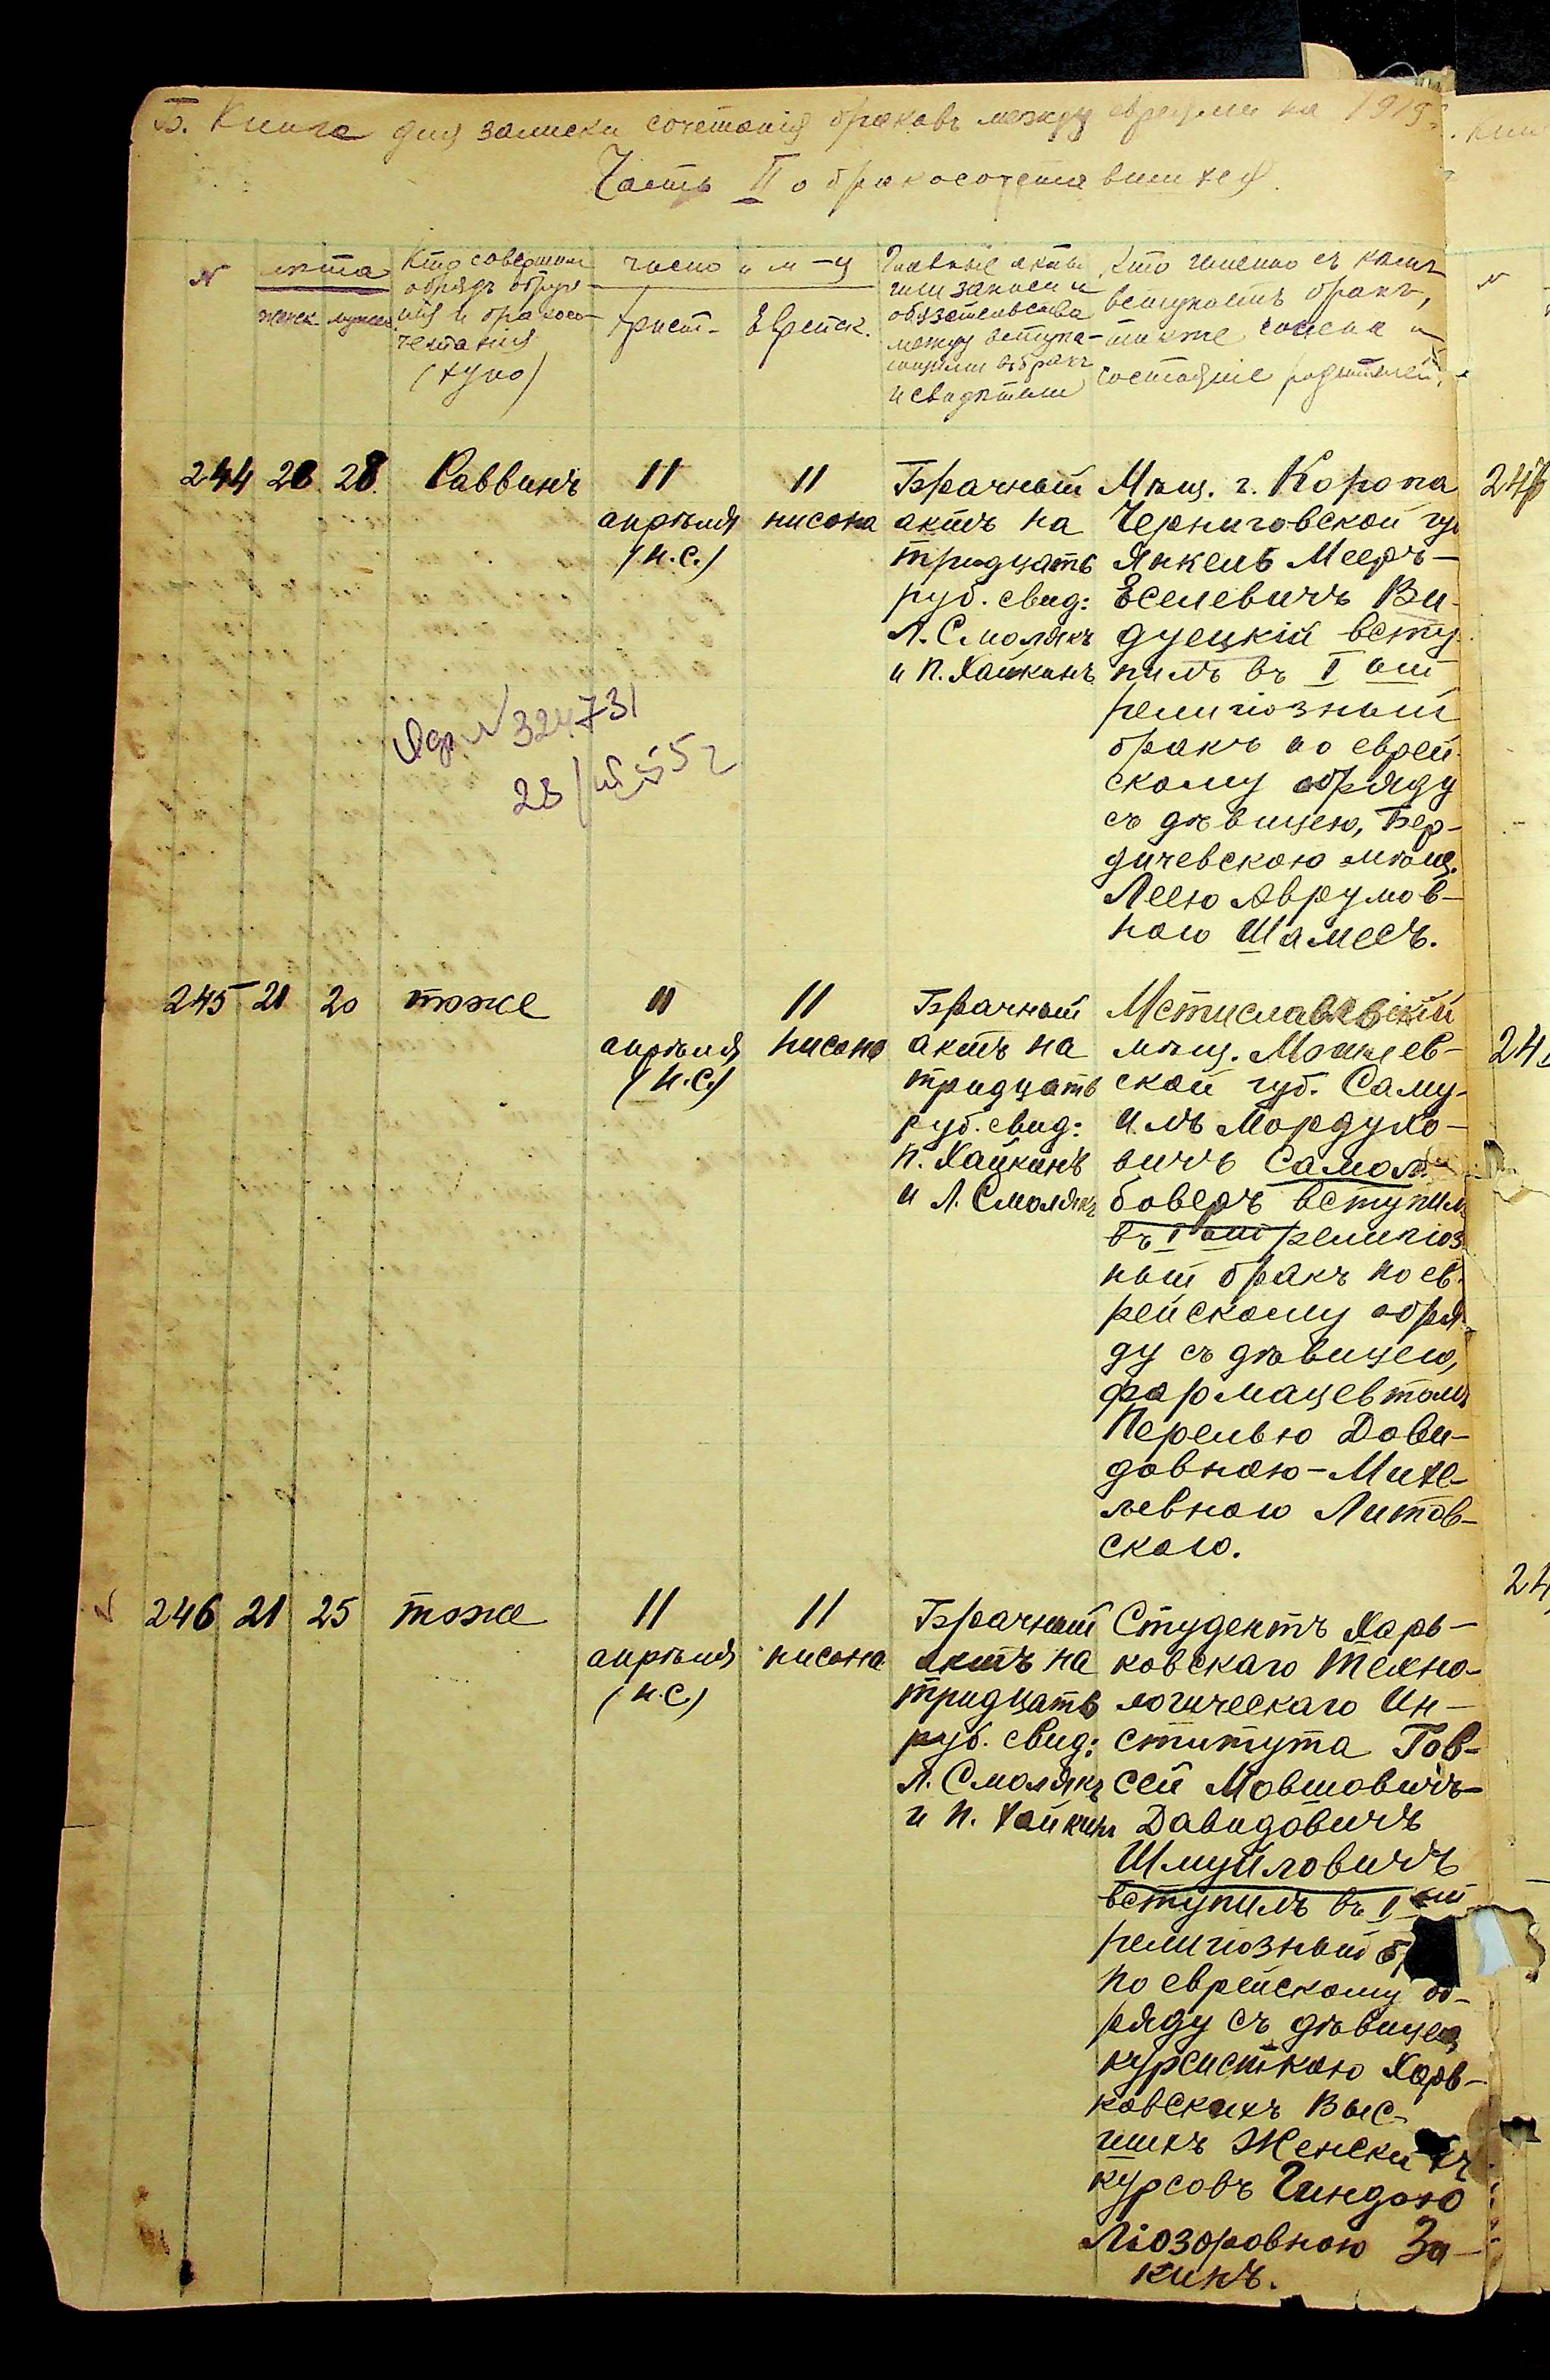 Б. Книга для записки сочетанія браковъ между евреями на 1919 г.
Часть II о бракосочетавшихся.
№
лѣта
женск. мужск.
Кто совершил
обрядъ обруче-
нія и бракосо-
четанія
(хупо)
число и м-ц
Христ. Еврейск.
Главные акты
или записи и
обязательства
между вступа-
ющими въ бракъ
и свидѣтели
Кто именно съ кѣмъ
вступаетъ бракъ,
также имена и
состояніе родителей.
244 28 28. Раввинъ
11
апрѣля
(н.с.)
11
нисона
Брачный
актъ на
тридцать
руб. свид:
Л. Смолякъ
и П. Хайкинъ
Мѣщ. г. Коропа
Черниговской гу
Янкель Мееръ-
Еселевичъ Ви-
дуецкій всту-
пилъ въ I ый
религіозный
бракъ по еврей-
скому обряду
съ дѣвицею, Бер-
дичевскою мѣщ.
Леею Аврумов-
ною Шамесъ.
№ 324731
28/
245 21 20 тоже
11
апрѣля
(н.с.)
11
нисона
Брачный
актъ на
тридцать
руб. свид:
П. Хайкинъ
и Л. Смолякъ
Мстиславскій
мѣщ. Могилев-
ской губ. Саму-
илъ Мордухо-
вичъ Самоль
боверъ вступил
въ I ый религіоз
ный бракъ по ев-
рейскому обря-
ду съ дѣвицею,
фармацевтомъ
Перелью Дави-
довною-Михе-
левною Литов-
скою.
246 21 25 тоже
11
апрѣля
(н.с.)
11
нисона
Брачный
актъ на
тридцать
руб. свид:
Л. Смолякъ
и П. Хайкинъ
Студентъ Харь-
ковскаго Техно-
логическаго Ин-
ститута Гов-
сей Мовшовичъ-
Давидовичъ
Шмуйловичъ
вступилъ въ I ый
религіозный б
по еврейскому об-
ряду съ дѣвицею
курсисткою Харь-
ковскихъ Выс-
шихъ Женскихъ
курсовъ Гиндою
Ліозоровною За-
кинъ.